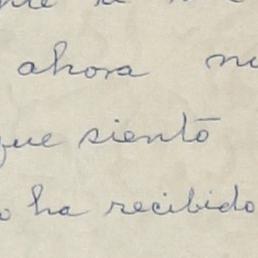 ahora
que siento
ha recibido